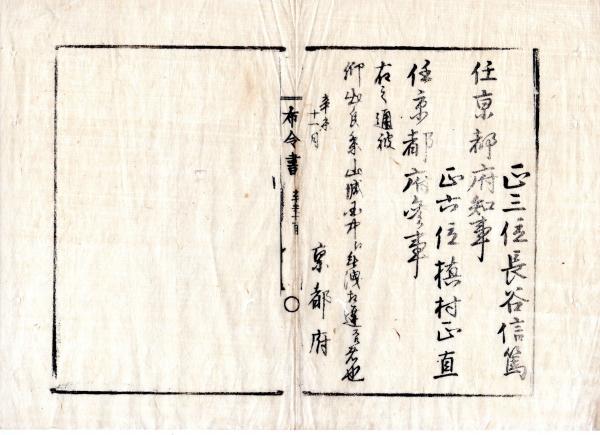 正三位長谷信篤
任京都府知事
正六位槙村正直
任京都府参事
右之通被
仰出候条山城国中に無洩相達るもの也
辛未
十一月
京都府
布令書
辛未十一月